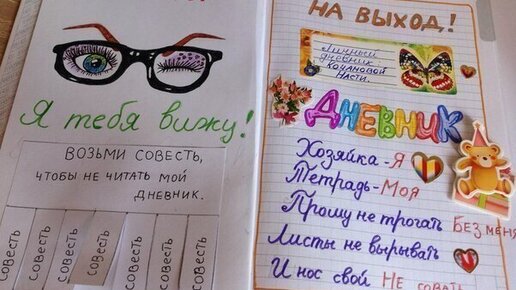 Я тебя вижу!
ВОЗЬМИ СОВЕСТЬ,
ЧТОБЫ НЕ ЧИТАТЬ МОЙ
ДНЕВНИК.
СОВЕСТЬ
СОВЕСТЬ
СОВЕСТЬ
СОВЕСТЬ
СОВЕСТЬ
СОВЕСТЬ
СОВЕСТЬ
НА ВЫХОД!
Личный
дневник
КОЧАНОВОЙ
НАСТИ.
ДНЕВНИК
Хозяйка-Я
Тетрадь-Моя
Прошу не трогать Без меня
Листы не вырывать
И нос свой Не совать